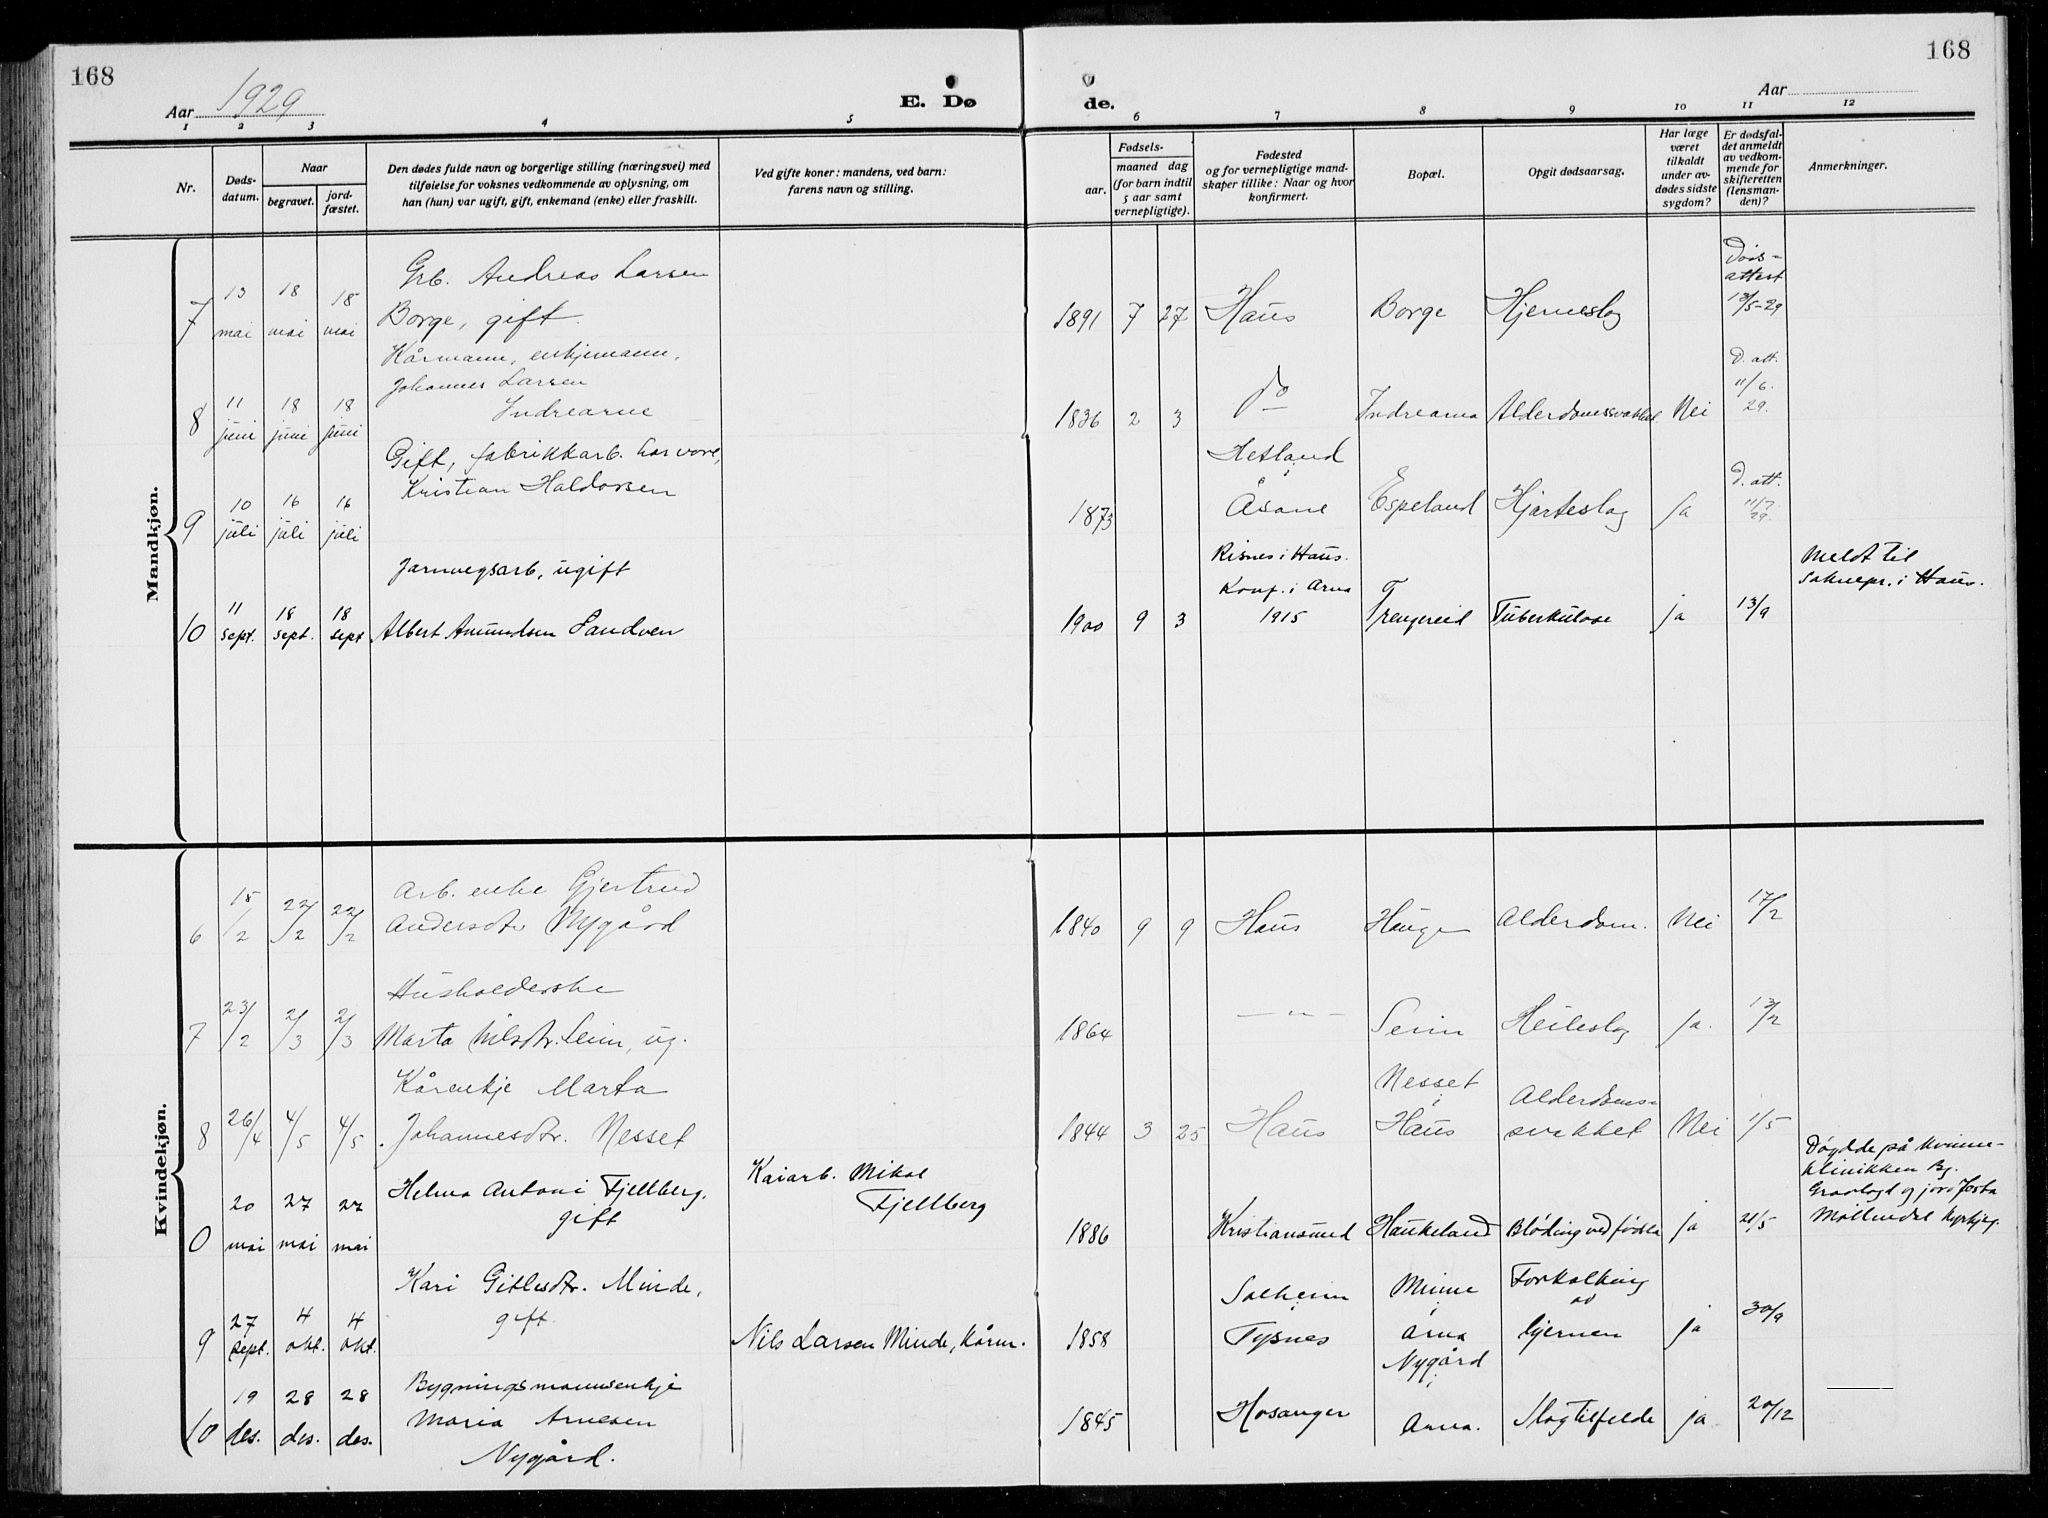 168
168
Aar 1929
E. Dø
de.
Aar
1 2 3 4 5 6 7 8 9 10 11 12
Nr.
Døds-
datum.
Naar
begravet.
jord-
fæstet.
Den dødes fulde navn og borgerlige stilling (næringsvei) med
tilføielse for voksnes vedkommende av oplysning, om
han (hun) var ugift, gift, enkemand (enke) eller fraskilt.
Ved gifte koner: mandens, ved barn:
farens navn og stilling.
Fødsels-
aar.
maaned dag
(for barn indtil
5 aar samt
vernepligtige).
Fødested
og for vernepligtige mand-
skaper tillike: Naar og hvor
konfirmert.
Bopæl.
Opgit dødsaarsag.
Har læge
været
tilkaldt
under av-
dødes sidste
sygdom?
Er dødsfal-
det anmeldt
av vedkom-
mende for
skifteretten
(lensman-
den)?
Anmerkninger.
Mandkjøn.
7
13 mai
18 mai
18 mai
Grb. Andreas Larsen
Borge, gift.
1891 7 27
Haus
Borge
Hjerneslag
Døds-
attest
13/5-29
8
11 juni
18 juni
18 juni
Kårmann, enkjemann,
Johannes Larsen
Indrearne
1836 2 3
do
Indrearna
Alderdomssvakhet
Nei
D. att.
11/6.
29.
9
10 juli
16 juli
16 juli
Gift, fabrikkarb. har vore,
Kristian Haldorsen
1873
Hetland
i
Åsane
Espeland
Hjarteslag
Ja
D. att.
11/7
29.
10
11 sept.
18 sept.
18 sept
Jarnvegsarb, ugift
Albert Amundsen Sandven
1900 9 3
Risnes i Haus.
Konf. i Arna
1915
Trengereid
Tuberkulose
ja
13/9
Meldt til
soknepr. i Haus.
Kvindekjøn.
6
15/2
22/2
22/2
Arb. enke Gjertrud
Andersdtr Nygård
1840 9 9
Haus
Hauge
Alderdom.
Nei
17/2
7
23/2
2/3
2/3
Husholderske
Marta Nilsdtr. Seim, ug.
1864
— " —
Seim
Heileslag
Ja.
8
26/4
4/5
4/5
Kårenkje Marta
Johannesdtr. Nesset
1844 3 25
Haus
Nesset
i
Haus
Alderdoms-
svakhet
Nei
1/5
0
20 mai
27 mai
27 mai
Helma Antoni Fjellberg.
gift
Kaiarb. Mikal
Fjellberg
1886
Kristiansund
Haukeland
Bløding ved fødsla
ja
21/5
Døydde på kvinne-
klinikken Bg.
Gravlagt og jordfesta
Møllendal kyrkjeg.
9
27 sept.
4 okt.
4 okt.
Kari Gitlesdtr. Minde,
gift.
Nils Larsen Minde, kårm.
1858
Solheim
i
Tysnes
Minne
i
Arna
Forkalking
av
hjernen
ja
30/9
10
19 des.
28 des.
28 des.
Bygningsmannsenkje
Maria Arnesen
Nygård.
1845
Hosanger
Nygård
i
Arna.
Slagtilfelde
ja
20/12